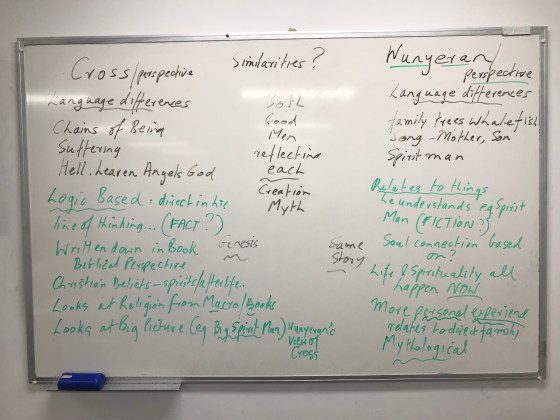 Cross/perspective
Language differences
Chains of Being
Suffering
Hell. Heaven Angels God
Logic Based : direct in his
line of thinking... (FACT?)
Written down in Book
Biblical Perspective
Christian Beliefs - spirits/afterlife.
Looks at Religion from Macro/Books
Looks at Big Picture (eg Big Spirit Man)
Similarities?
Both
Good
Men
reflecting
each
Creation
Myth
Genesis
Same
Story
Wunyeran's
View of
Cross
Wunyeran/
perspective
Language differences
family trees whalefish
Song - Mother, Son
Spirit man
Relates to things
he understands eg Spirit
Man (FICTION?)
Soul connection based
on?
Life & Spirituality all
happen NOW
More personal experience
relates to direct family
Mythological